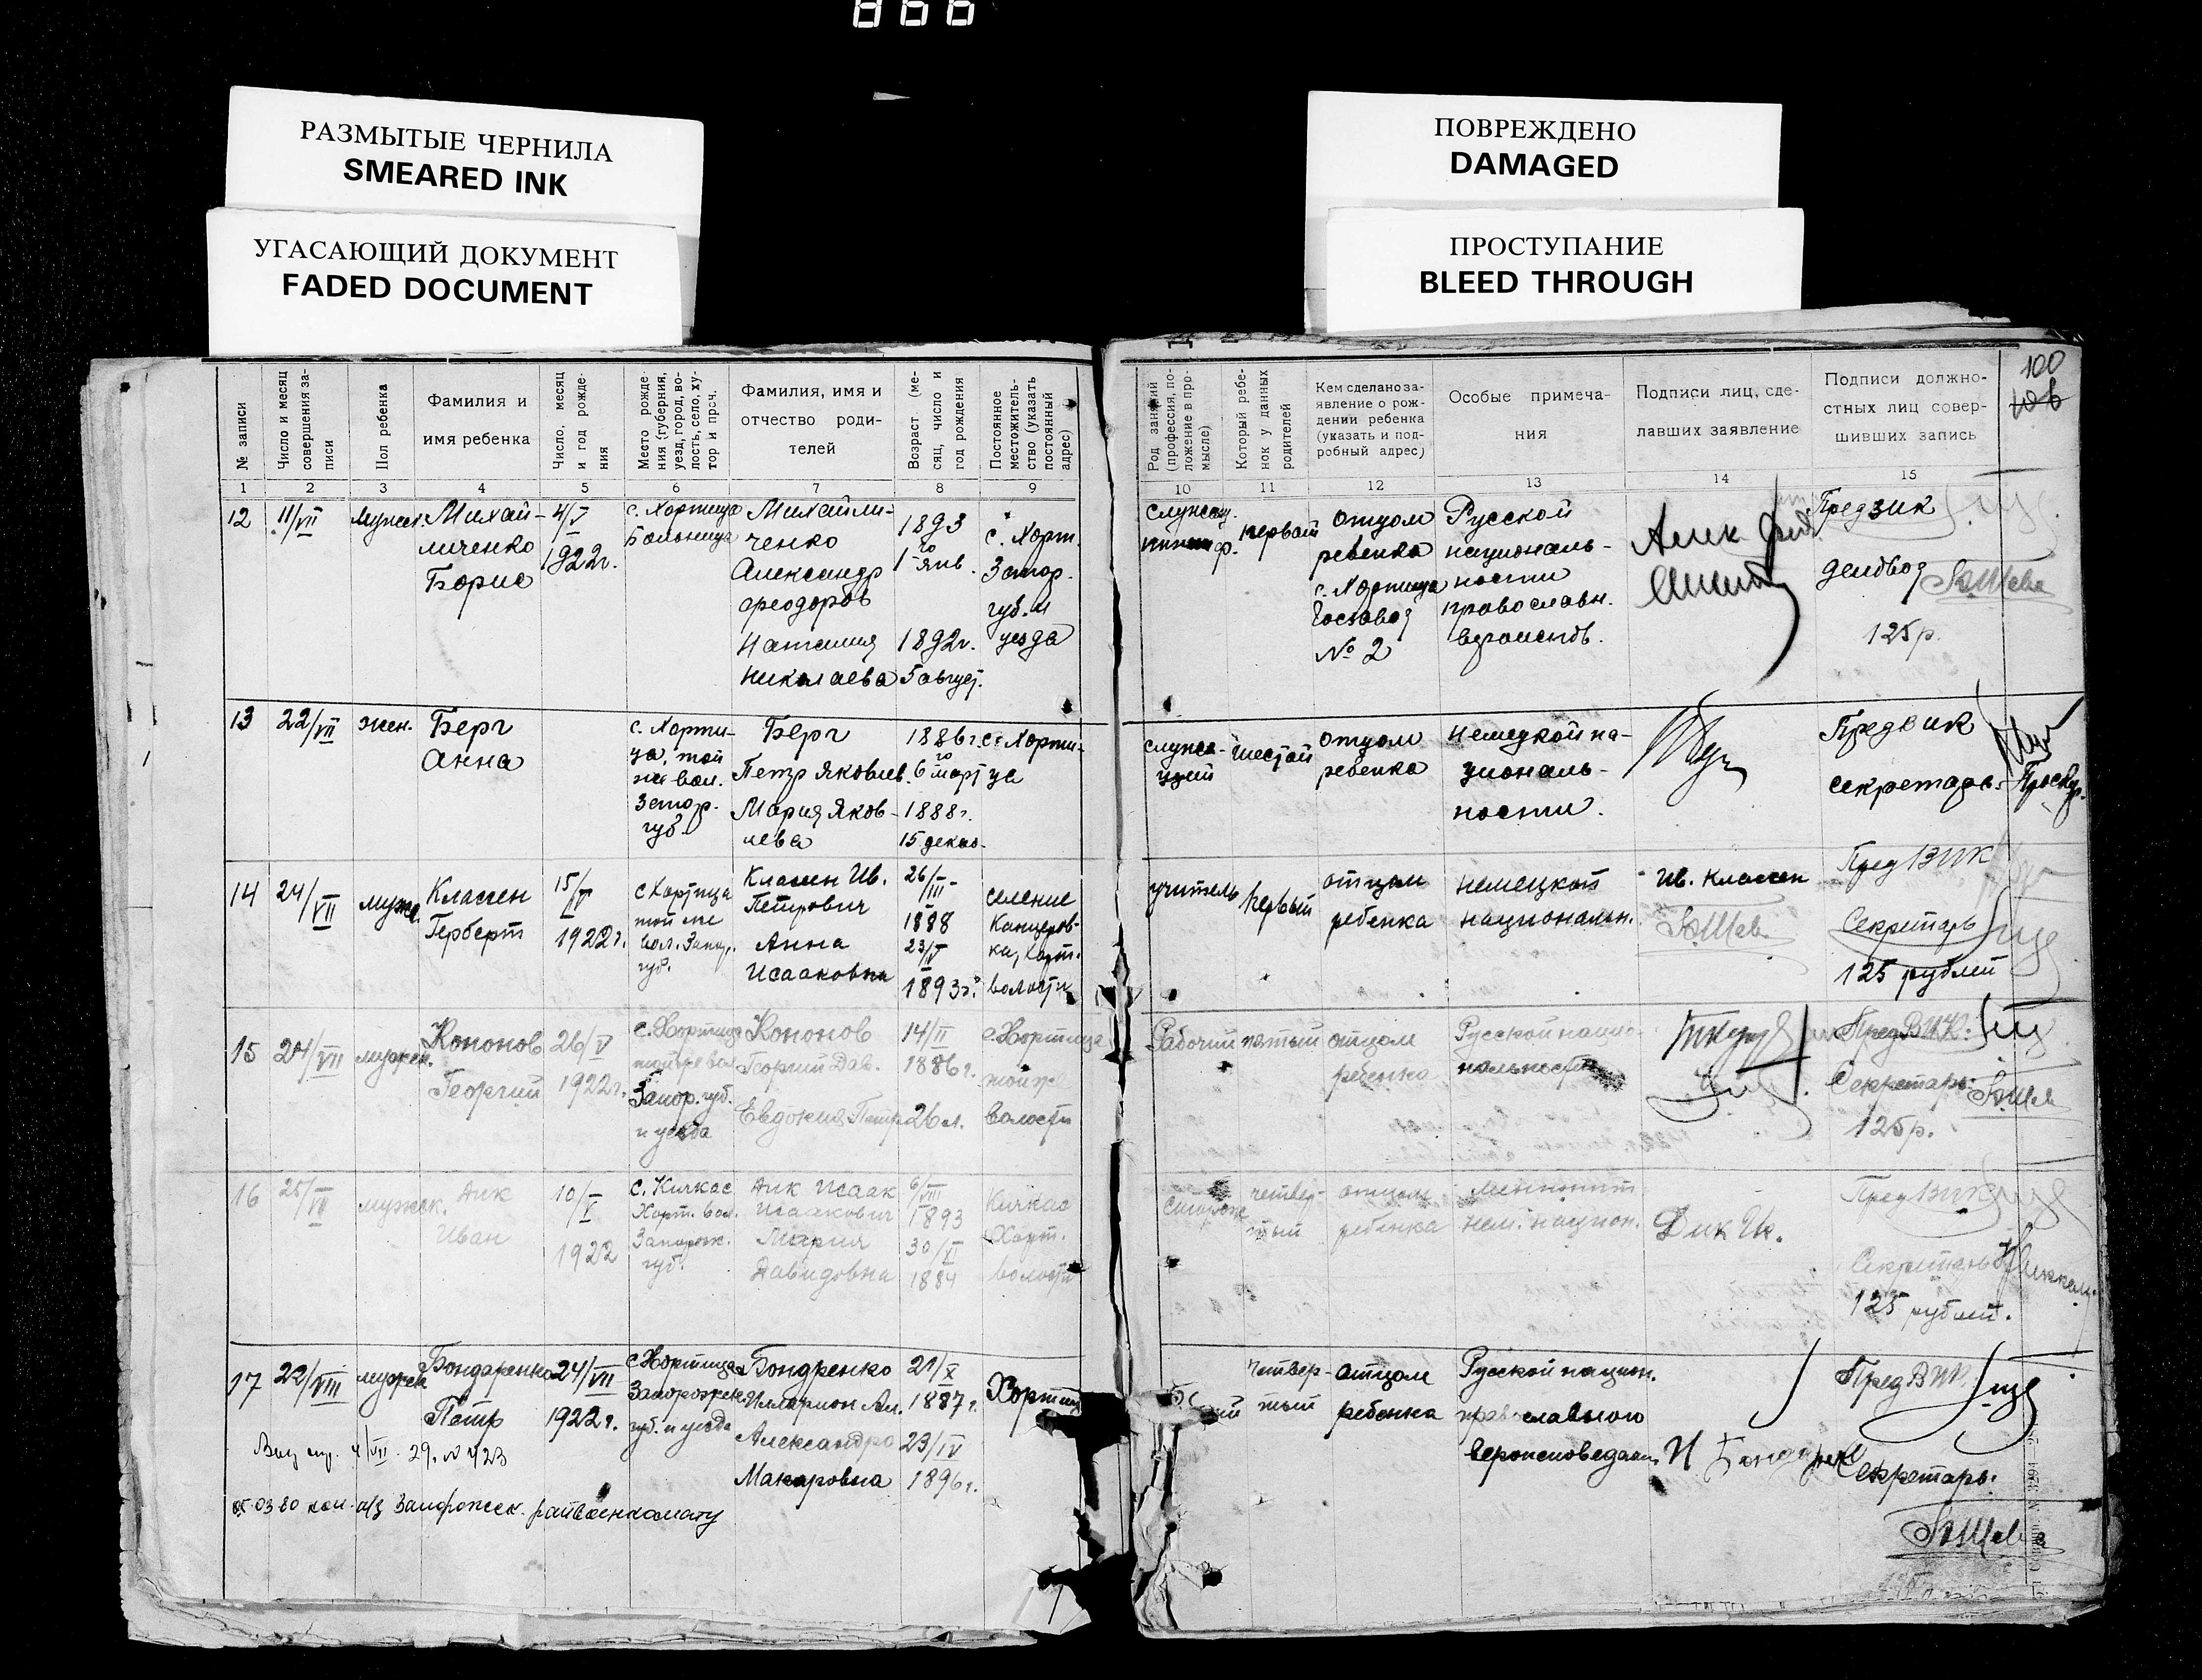 866
РАЗМЫТЫЕ ЧЕРНИЛА
SMEARED INK
УГАСАЮЩИЙ ДОКУМЕНТ
FADED DOCUMENT
ПОВРЕЖДЕНО
DAMAGED
ПРОСТУПАНИЕ
BLEED THROUGH
№ записи
Число и месяц
совершения за-
писи
Пол ребенка
Фамилия и
имя ребенка
Число, месяц
и год рожде-
ния
Место рожде-
ния (губерния,
уезд, город, во-
лость, село, ху-
тор и проч.
Фамилия, имя и
отчество роди-
телей
Возраст (ме-
сяц, число и
год рождения
Постоянное
местожитель-
ство (указать
постоянный
адрес)
Род занятий
(профессия, по-
ложение в про-
мысле)
Который ребе-
нок у данных
родителей
Кем сделано за-
явление о рож-
дении ребенка
(указать и под-
робный адрес)
Особые примеча-
ния
Подписи лиц, сде-
лавших заявление
Подписи должно-
стных лиц совер-
шивших запись
100
1 2 3 4 5 6 7 8 9 10 11 12 13 14 15
12
11/VII
мужск.
Михай-
личенко
Борис
4/V
1922г.
с. Хортица
Больница
Михайли-
ченко
Александр
Феодоров
Наталия
Николаева
1893
1го янв.
1892г.
5 август.
с. Хорт.
Запор.
губ. и
уезда
первый
отцом
ребенка
с. Хортица
№ 2
Русской
националь-
ности
православн.
Предвик
делввод
125р.
13
22/VII
жен.
Берг
Анна
с. Хорти-
ца, той
же вол.
Запор.
губ.
Берг
Петр Яковлев.
Мария Яков-
лева
1886г.
6го март
1888г.
15 декаб.
с. Хорти-
ца
служа-
щий
шестой
отцом
ребенка
немецкой на-
циональ-
ности.
Предвик
секретарь
14
24/VII
мужс.
Классен
Герберт
15/V
1922г.
с Хортица
той же
вол. Запор.
губ.
Классен Ив.
Петрович
Анна
Исааковна
26/III
1888
23/IV
1893г.
селение
Канцеров-
ка, Хорт.
волости
учитель
первый
отцом
ребенка
немецкой
национальн.
Ив. Классен
Пред ВИК
Секретарь
125 рублей
15
24/VII
мужск.
Кононов
Георгий
26/V
1922г.
с. Хортица
той же вол.
Запор. губ.
и уезда
Кононов
Георгий Дав.
Евдокия Петр.
14/II
1886г.
26 л.
с. Хортица
той же
волости
Рабочий
пятый
отцом
ребенка
Русской нацио-
нальности
Пред ВИК.
Секретарь
125р.
16
25/VII
мужск.
Дик
Иван
10/V
1922
с. Кичкас
Хорт. вол.
Запорож.
губ.
Дик Исаак
Исаакович
Мария
Давидовна
6/VIII
1893
30/VI
1884
Кичкас
Хорт.
волости
Сторож
четвер-
тый
отцом
ребенка
Меннонит
нем. национ.
Дик Ис.
Пред ВИК
Секретарь
125 рублей.
17
22/VIII
мужск
Бондаренко
Петр
24/VII
1922г.
с Хортица
Запорожск.
губ. и уезда
Бондренко
Илларион Ал.
Александра
Макаровна
21/X
1887г.
23/IV
1896г.
Хортица
четвер-
тый
отцом
ребенка
Русской национ.
православного
вероисповедан.
И Бондарен
Пред ВИК
Секретарь:
4/VII 29. № 423
05.03.80 коп. а/з Запорожск. райвоенкомату